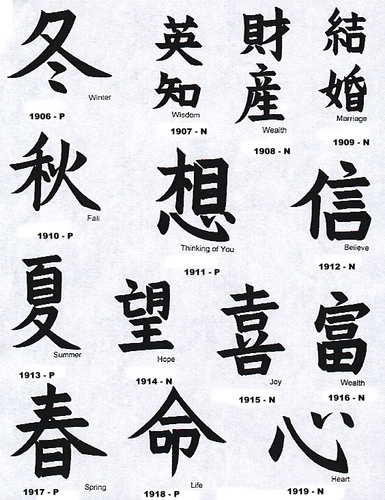 冬
Winter
1906 - P
英
知
Wisdom
1907 - N
財
産
Wealth
1908 - N
結
婚
Marriage
1909 - N
秋
Fall
1910 - P
想
Thinking of You
1911 - P
信
Believe
1912 - N
夏
Summer
1913 - P
望
Hope
1914 - N
喜
Joy
1915 - N
富
Wealth
1916 - N
春
Spring
1917 - P
命
Life
1918 - P
心
Heart
1919 - N